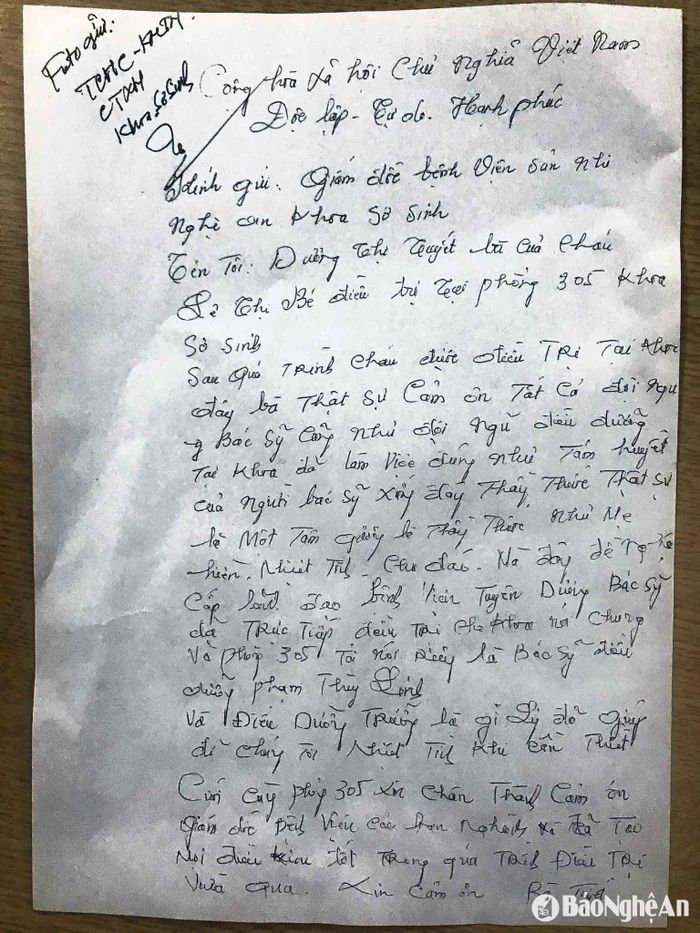 Foto gửi:
TCHC - KHTH
CTXH
Khoa Sơ Sinh
Cộng hòa xã hội Chủ Nghĩa Việt Nam
Độc lập - Tự do. Hạnh phúc
Kính gửi: Giám đốc bệnh viện sản nhi
Nghệ an Khoa Sơ Sinh
Tên Tôi: Dương Thị Tuyết bà của Cháu
Lê Thị Bé điều trị tại phòng 305 Khoa
Sơ Sinh
Sau quá Trình Cháu được điều Trị Tại Khoa
đây bà Thật Sự Cảm ơn Tất Cả đội ngũ
y Bác Sỹ Cũng như đội ngũ điều dưỡng
Tại Khoa đã làm việc đúng như Tâm huyết
Của người bác sỹ xứng đáng Thầy Thuốc Thật sự
là Một Tấm gương là Thầy Thuốc Như Mẹ
hiền. Nhiệt Tình Chu đáo. Nà đây đề
Cấp lãnh đạo bệnh viện Tuyên Dương Bác Sỹ
đã Trực Tiếp điều Trị Cho Khoa nói Chung
Và phòng 305 Tôi nói Riêng là Bác Sỹ điều
dưỡng phạm Thùy Linh
Và Điều Dưỡng Trưởng là gì Lý đỡ giúp
đỡ Chúng Tôi Nhiệt Tình Khi Cần Thiết
Cuối Cùng phòng 305 Xin Chân Thành Cảm ơn
Giám đốc Bệnh Viện Các ban Nghành đã Tạo
Mọi điều kiện tốt Trong quá Trình Điều Trị
Vừa qua. Xin Cảm ơn Bà Tuyết
BáoNghệAn